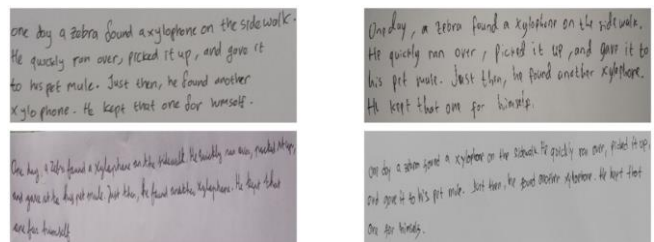 one day a zebra found a xylophone on the sidewalk.
He quickly ran over, picked it up, and gave it
to his pet mule. Just then, he found another
xylophone. He kept that one for himself.
One day, a zebra found a xylophone on the sidewalk.
He quickly ran over, picked it up, and gave it to
his pet mule. Just then, he found another xylophone.
He kept that one for himself.
One day, a zebra found a xylophone on the sidewalk. He quickly ran over, picked it up,
and gave it to his pet mule. Just then, he found another xylophone. He kept that
one for himself
One day a zebra found a xylophone on the sidewalk He quickly ran over, picked it up,
and gave it to his pet mule. Just then, he found another xylophone. He kept that
one for himself.